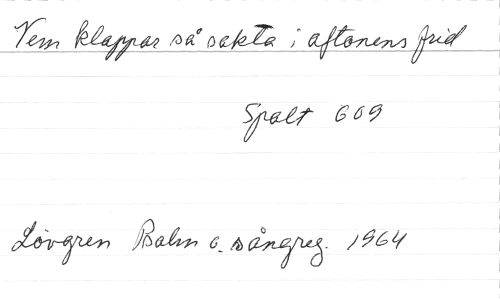 Vem klappar så sakta i aftonens frid
Spalt 609
Lövgren Psalm o. sångreg. 1964